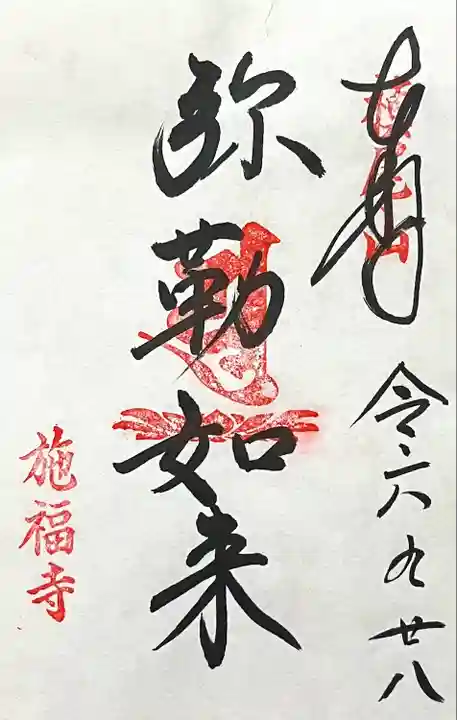 奉拝
令六九廿八
弥勒如来
施福寺